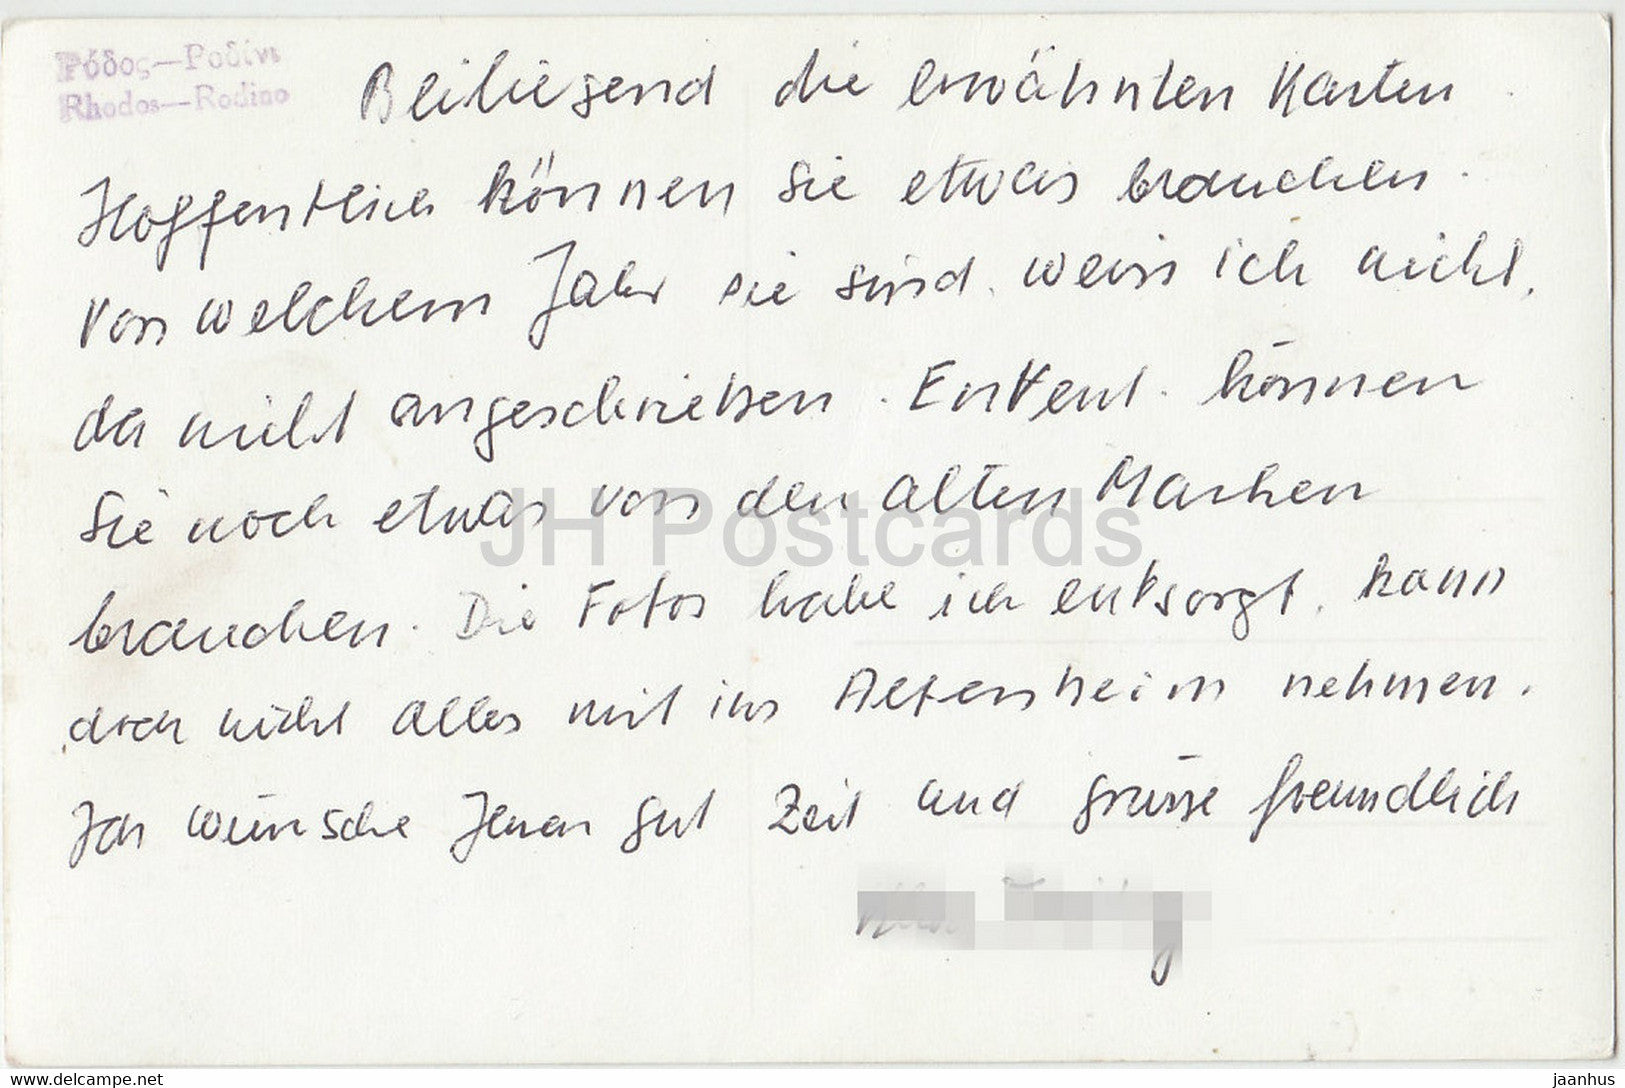 Ρόδος—Ροδίνι
Rhodos—Rodino
Beiliegend die erwähnten Karten.
Hoffentlich können Sie etwas brauchen.
Von welchem Jahr sie sind, weiss ich nicht,
da nicht angeschrieben. Eventent. können
Sie noch etwas von den alten Marken
brauchen. Die Fotos habe ich entsorgt, kann
doch nicht alles mit ins Altersheim nehmen.
Ich wünsche Ihnen gut Zeit und grüsse freundlich
JH Postcards
www.delcampe.net
jaanhus